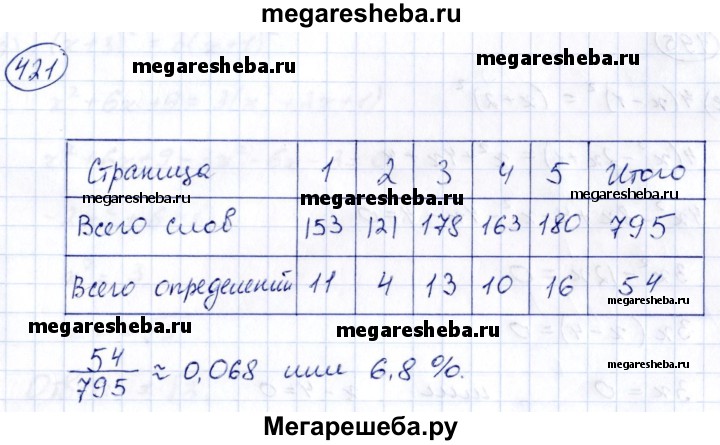 megaresheba.ru
421
megaresheba.ru megaresheba.ru
Страница 1 2 3 4 5 Итого
megaresheba.ru megaresheba.ru megaresheba.ru
Всего слов 153 121 178 163 180 795
Всего определений 11 4 13 10 16 54
megaresheba.ru
megaresheba.ru megaresheba.ru
54/795 ≈ 0,068 или 6,8 %.
Мегарешеба.ру